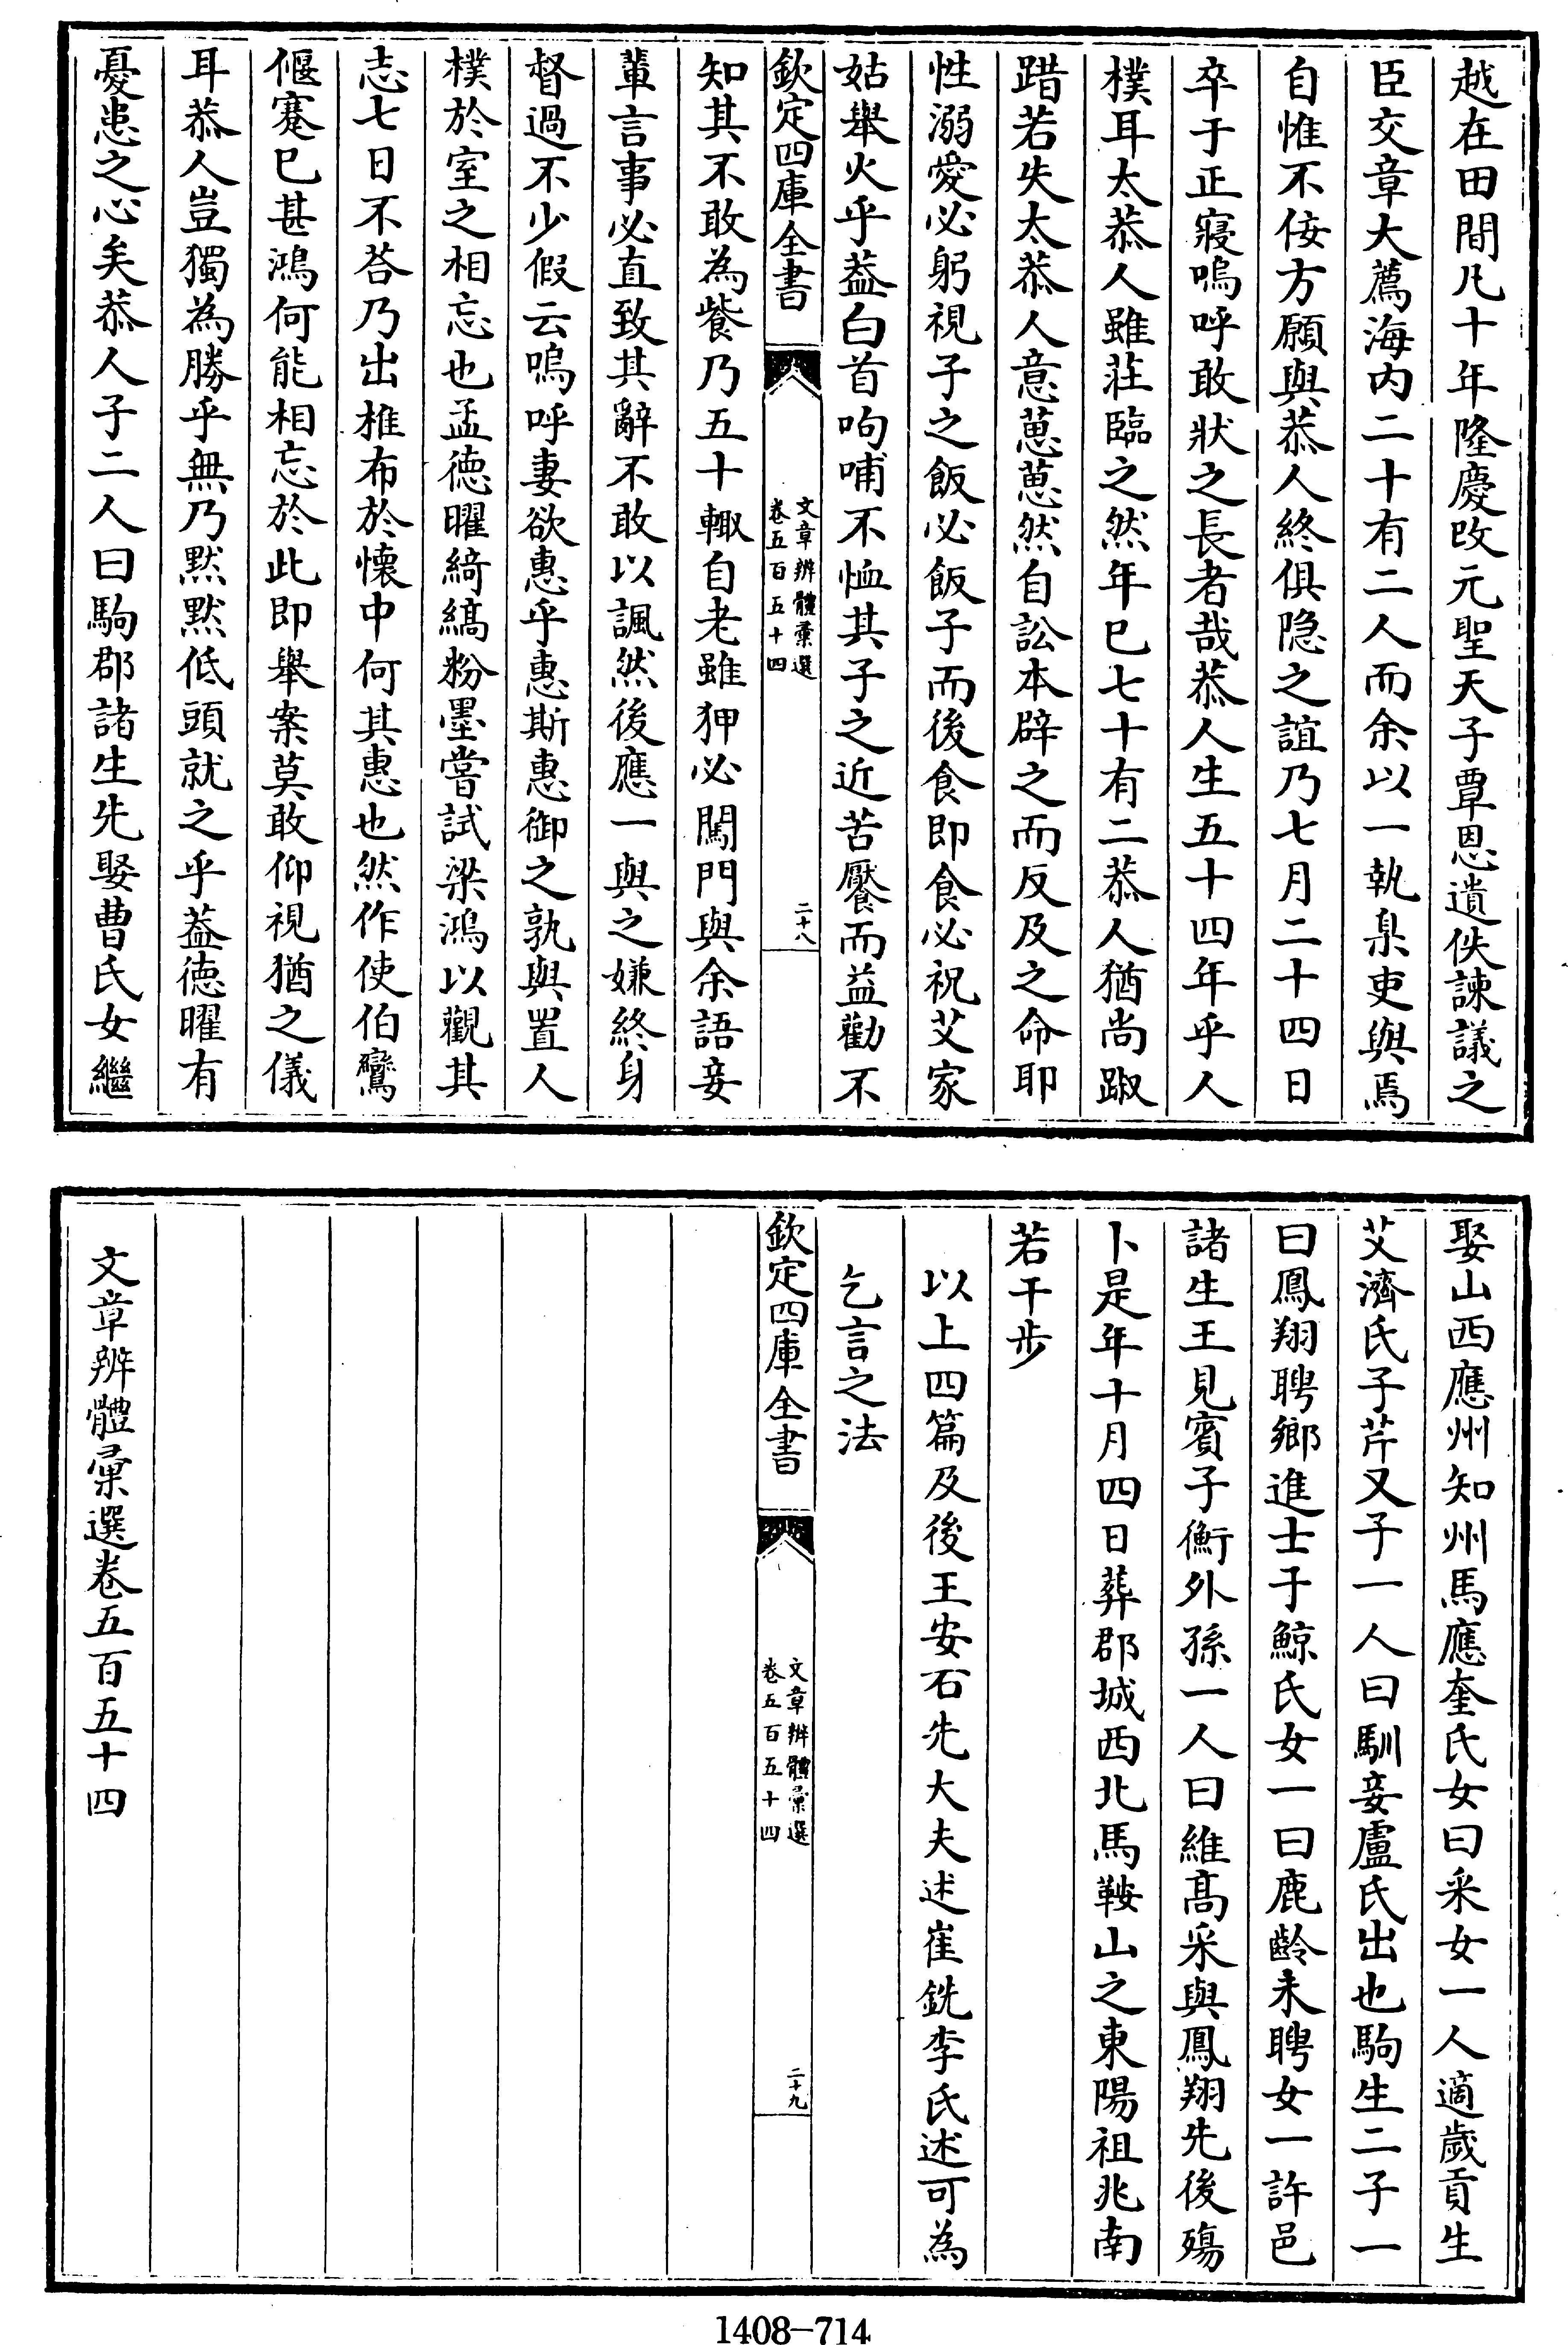 越在田間凡十年隆慶改元聖天子覃恩遺佚諫議之
臣交章大薦海内二十有二人而余以一執臬吏與焉
自惟不佞方願與恭人終俱隐之誼乃七月二十四日
卒于正寢嗚呼敢狀之長者哉恭人生五十四年乎人
樸耳太恭人雖莊臨之然年巳七十有二恭人猶尚踧
踖若失太恭人意葸葸然自訟本辟之而反及之命耶
性溺愛必躬視子之飯必飯子而後食即食必祝艾家
姑舉火乎葢白首呴哺不恤其子之近苦饜而益勸不
欽定四庫全書
文章辨體彚選
卷五百五十四
二十八
知其不敢為餮乃五十輙自老雖狎必闖門與余語妾
輩言事必直致其辭不敢以諷然後應一與之嫌終身
督過不少假云嗚呼妻欲惠乎惠斯惠御之孰與置人
樸於室之相忘也孟徳曜綺縞粉墨嘗試梁鴻以觀其
志七日不荅乃出椎布於懐中何其惠也然作使伯鸞
偃蹇巳甚鴻何能相忘於此即舉案莫敢仰視猶之儀
耳恭人豈獨為勝乎無乃黙黙低頭就之乎葢徳曜有
憂患之心矣恭人子二人曰駒郡諸生先娶曹氏女繼
娶山西應州知州馬應奎氏女曰采女一人適歲貢生
艾濟氏子芹又子一人曰馴妾盧氏出也駒生二子一
曰鳳翔聘鄉進士于鯨氏女一曰鹿齡未聘女一許邑
諸生王見賓子衡外孫一人曰維髙采與鳳翔先後殤
卜是年十月四日葬郡城西北馬鞍山之東陽祖兆南
若干步
以上四篇及後王安石先大夫述崔銑李氏述可為
乞言之法
欽定四庫全書
文章辨體彚選
卷五百五十四
二十九
文章辨體彚選卷五百五十四
1408-714